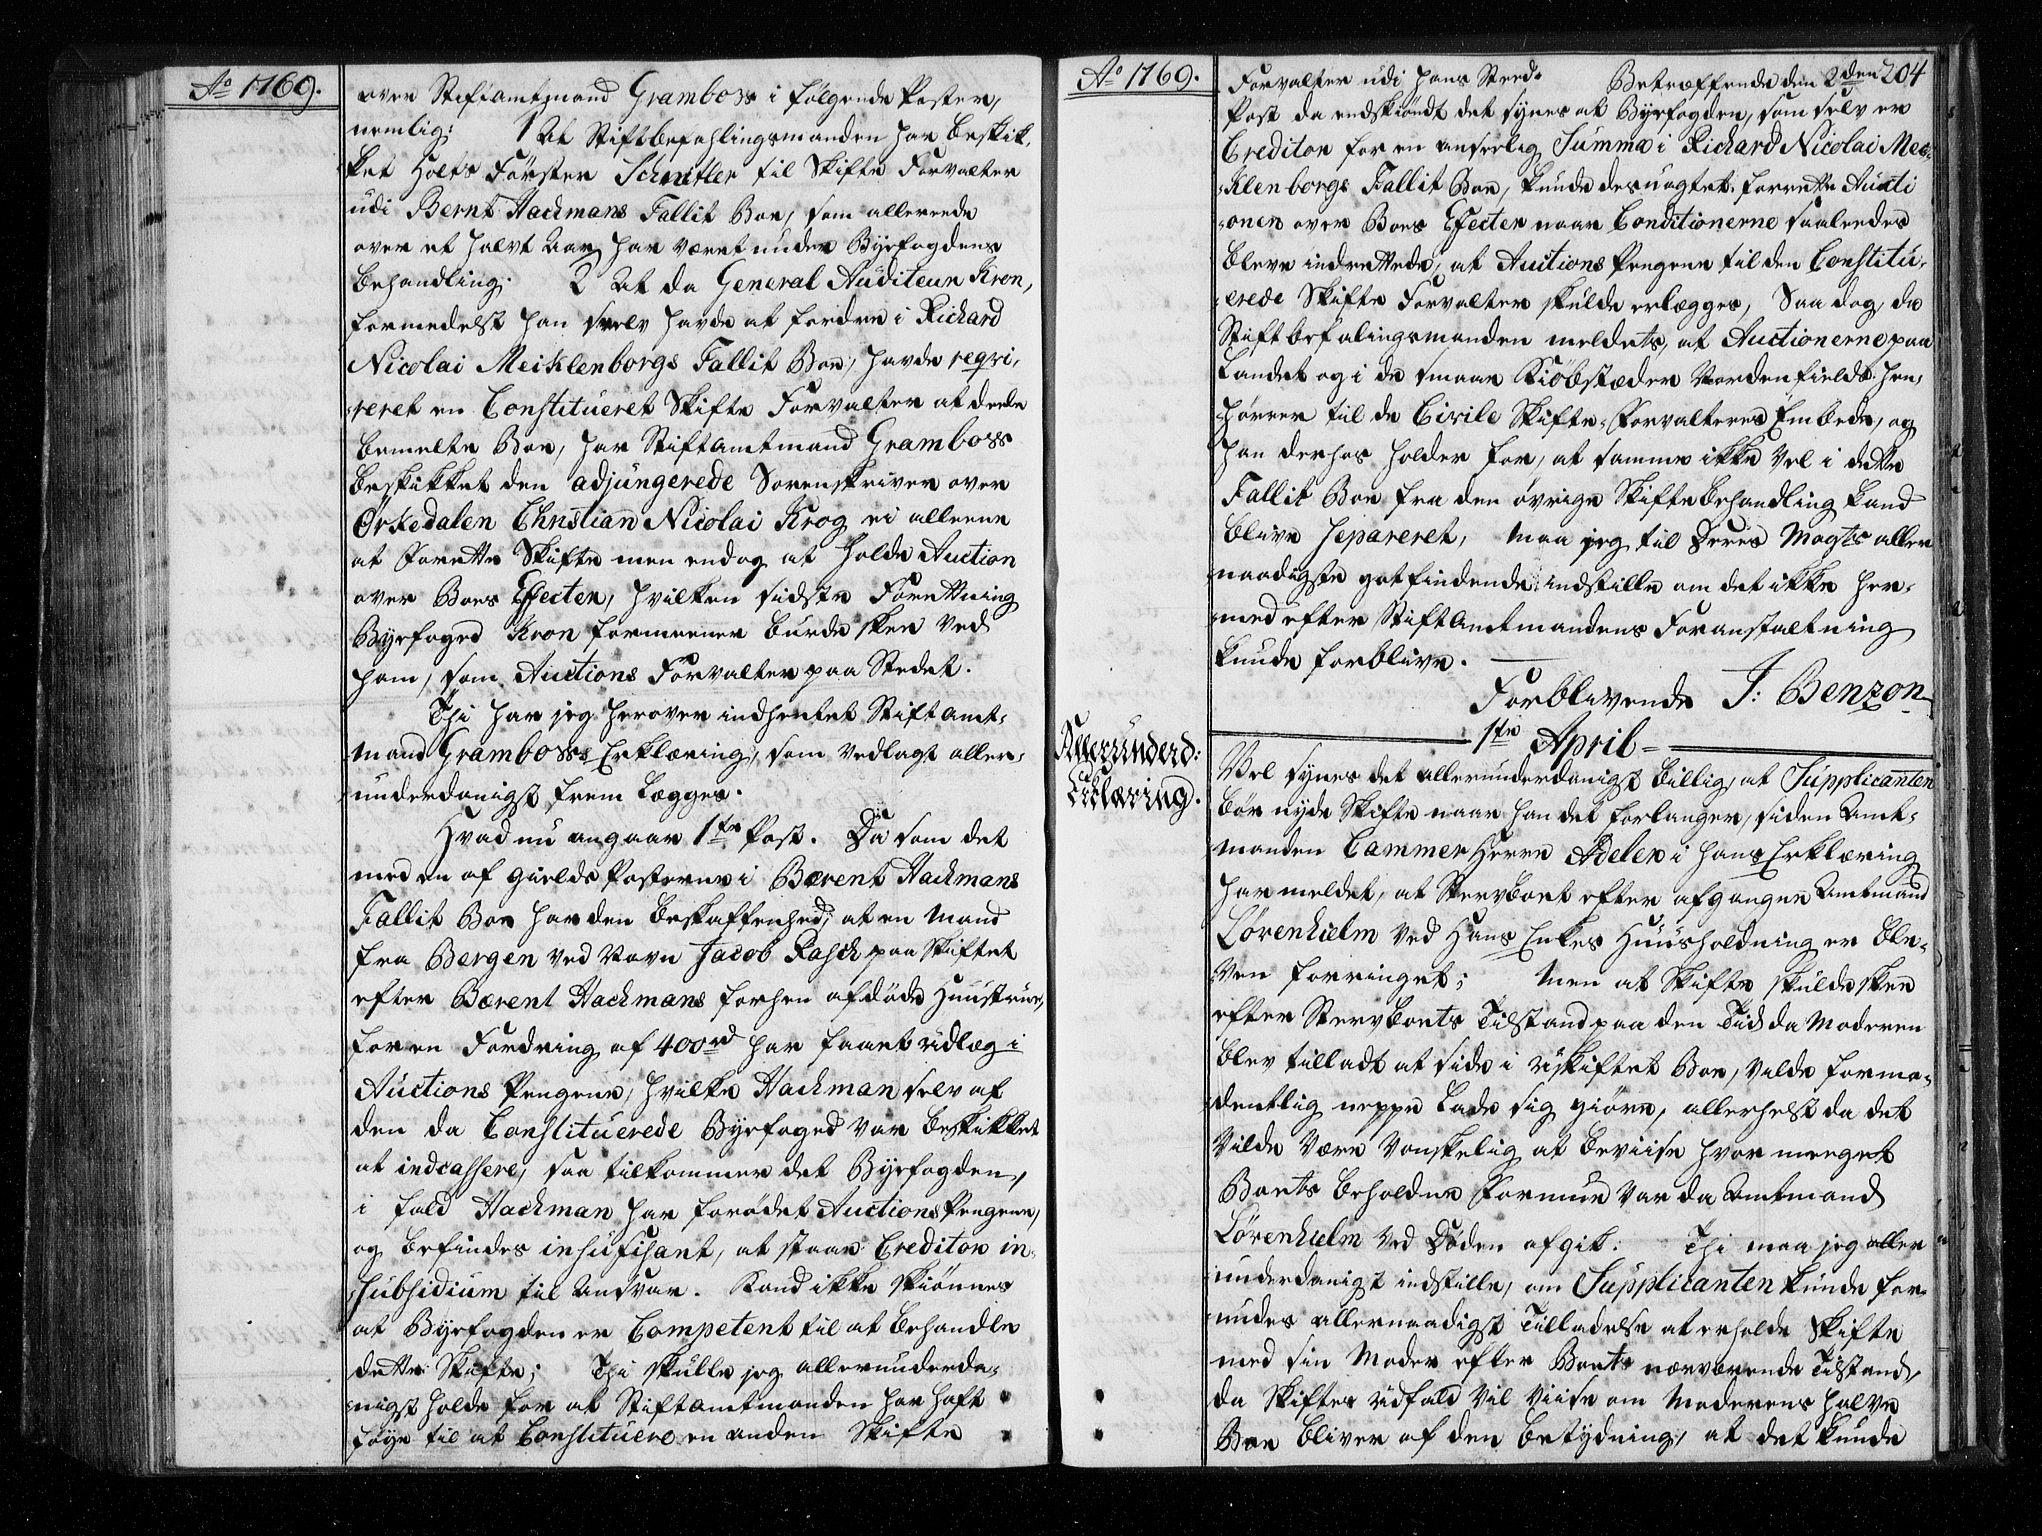 Ao 1769.
over Stiftamtmand Grambows i følgende Poster,
nemlig: 1 At Stiftbefahlingsmanden har beskik-
ket Holts Förster Schnitler til Skifte Forvalter
udi Bernt Hackmans Fallit Boe, som allereede
over et halvt Aar har været under Byefogdens
behandling. 2 At da General Auditeur Kron,
formedelst han selv havde at fordre i Richard
Nicolai Meiklenborgs Fallit Boe, havde reqvi-
reret en Constitueret Skifte Forvalter at dele
bemelte Boe, har Stiftamtmand Grambows
beskikket den adjungerede Sorenskriver over
Örkedalen Christian Nicolai Krog ei alleene
at forette Skifte men endog at holde Auction
over Boes Effecter, hvilken sidste Forettning
Byefoged Kron formeener burde skee ved
ham, som Auctions Forvalter paa Stedet.
Thi har jeg herover indhentet Stiftamt-
mand Grambows Erklæring, som vedlagt aller-
underdanigst frem legges.
Hvad nu angaar 1ste Post. Da som det
med en af gields Posterne i Bærent Hackmans
Fallit Boe har den beskaffenhed, at en Mand
fra Bergen ved Navn Jacob Rasch paa Skiftet
efter Bærent Hackmans forhen afdöde Huustrue,
for en Fordring af 400rd har faaet udlæg i
Auctions Pengene, hvilke Hackman selv af
den da Constituerede Byefoged var beskikket
at indcassere, saa tilkommer det Byefogden,
i fald Hackman har forödet Auctions Pengene,
og befindes insufisant, at staae Creditor in-
subsidium til Ansvar. Kand ikke skiönnes
at Byefogden er Competent til at behandle
dette Skifte; Thi skulle jeg allerunderda-
nigst holde for at Stiftamtmanden har haft
föye til at Constituere en anden Skifte
Ao 1769.
204
Forvalter udi hans Sted. Betreffende den 2den
Post da endskiöndt det synes at Byefogden, som selv er
Creditor for en anseelig Summa i Richard Nicolai Mei-
klenborgs Fallit Boe, kunde desuagtet forrette Aucti
onen over Boes Effecter naar Conditionerne saaledes
bleve indrettede, at Auctions Pengene til den Constitu-
erede Skifte Forvalter skulde erlægges, Saa dog, da
Stiftbefalingsmanden meldets, at Auctionerne paa
Landet og i de smaae Kiöbstæder Nordenfields hen-
hörrer til de Civile Skifte-Forvalteres Embede, og
han derhos holder for, at samme ikke vel i dette
Fallit Boe fra den övrige Skiftebehandling kand
blive separeret, maa jeg til Deris Mayts aller
naadigste gotfindende indstille om det ikke her-
med efter Stiftamtmandens Foranstaltning
kunde forblive.
Forblivende J: Benzon
1ste April
Allerunderd:
Erklæring.
Vel synes det allerunderdanigst billig, at Supplicanten
bör nyde Skifte naar han det forlanger, siden Amt-
manden Cammer Herre Adeler i hans Erklæring
har meldet, at Stervboet efter afgangne Amtmand
Lövenhielm ved Hans Enkes Huusholdning er ble-
ven forringet; Men at Skifte skulde skee
efter Stervboets Tilstand paa den Tid da Moderen
blev tilladt at side i uskiftet Boe, vilde forme-
dentlig neppe lade sig giöre, allerhelst da det
vilde være vanskelig at beviise hvor meeget
Boets beholdne Formue var da Amtmand
Lövenhielm ved Döden afgik. Thi maa jeg aller
underdanigst indstille, om Supplicanten kunde for-
undes allernaadigst Tilladelse at erholde Skifte
med sin Moder efter Boets nærværende Tilstand,
da Skiftes udfald vil viise om Moderens halve
Boe bliver af den betydning, at det kunde